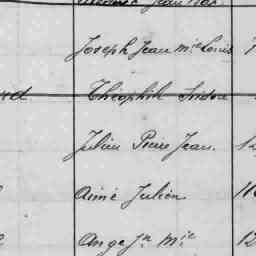 Joseph Jean Mie Louis
Théophile Isidore
Julien Pierre Jean
Aimé Julien
Ange Jn Mie